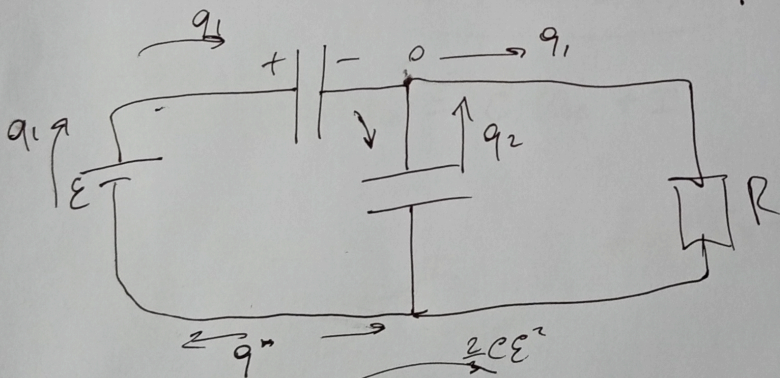 q₁
+ − 0 q₁
q₁
ε
q₂
R
q*
2/3 Cε²